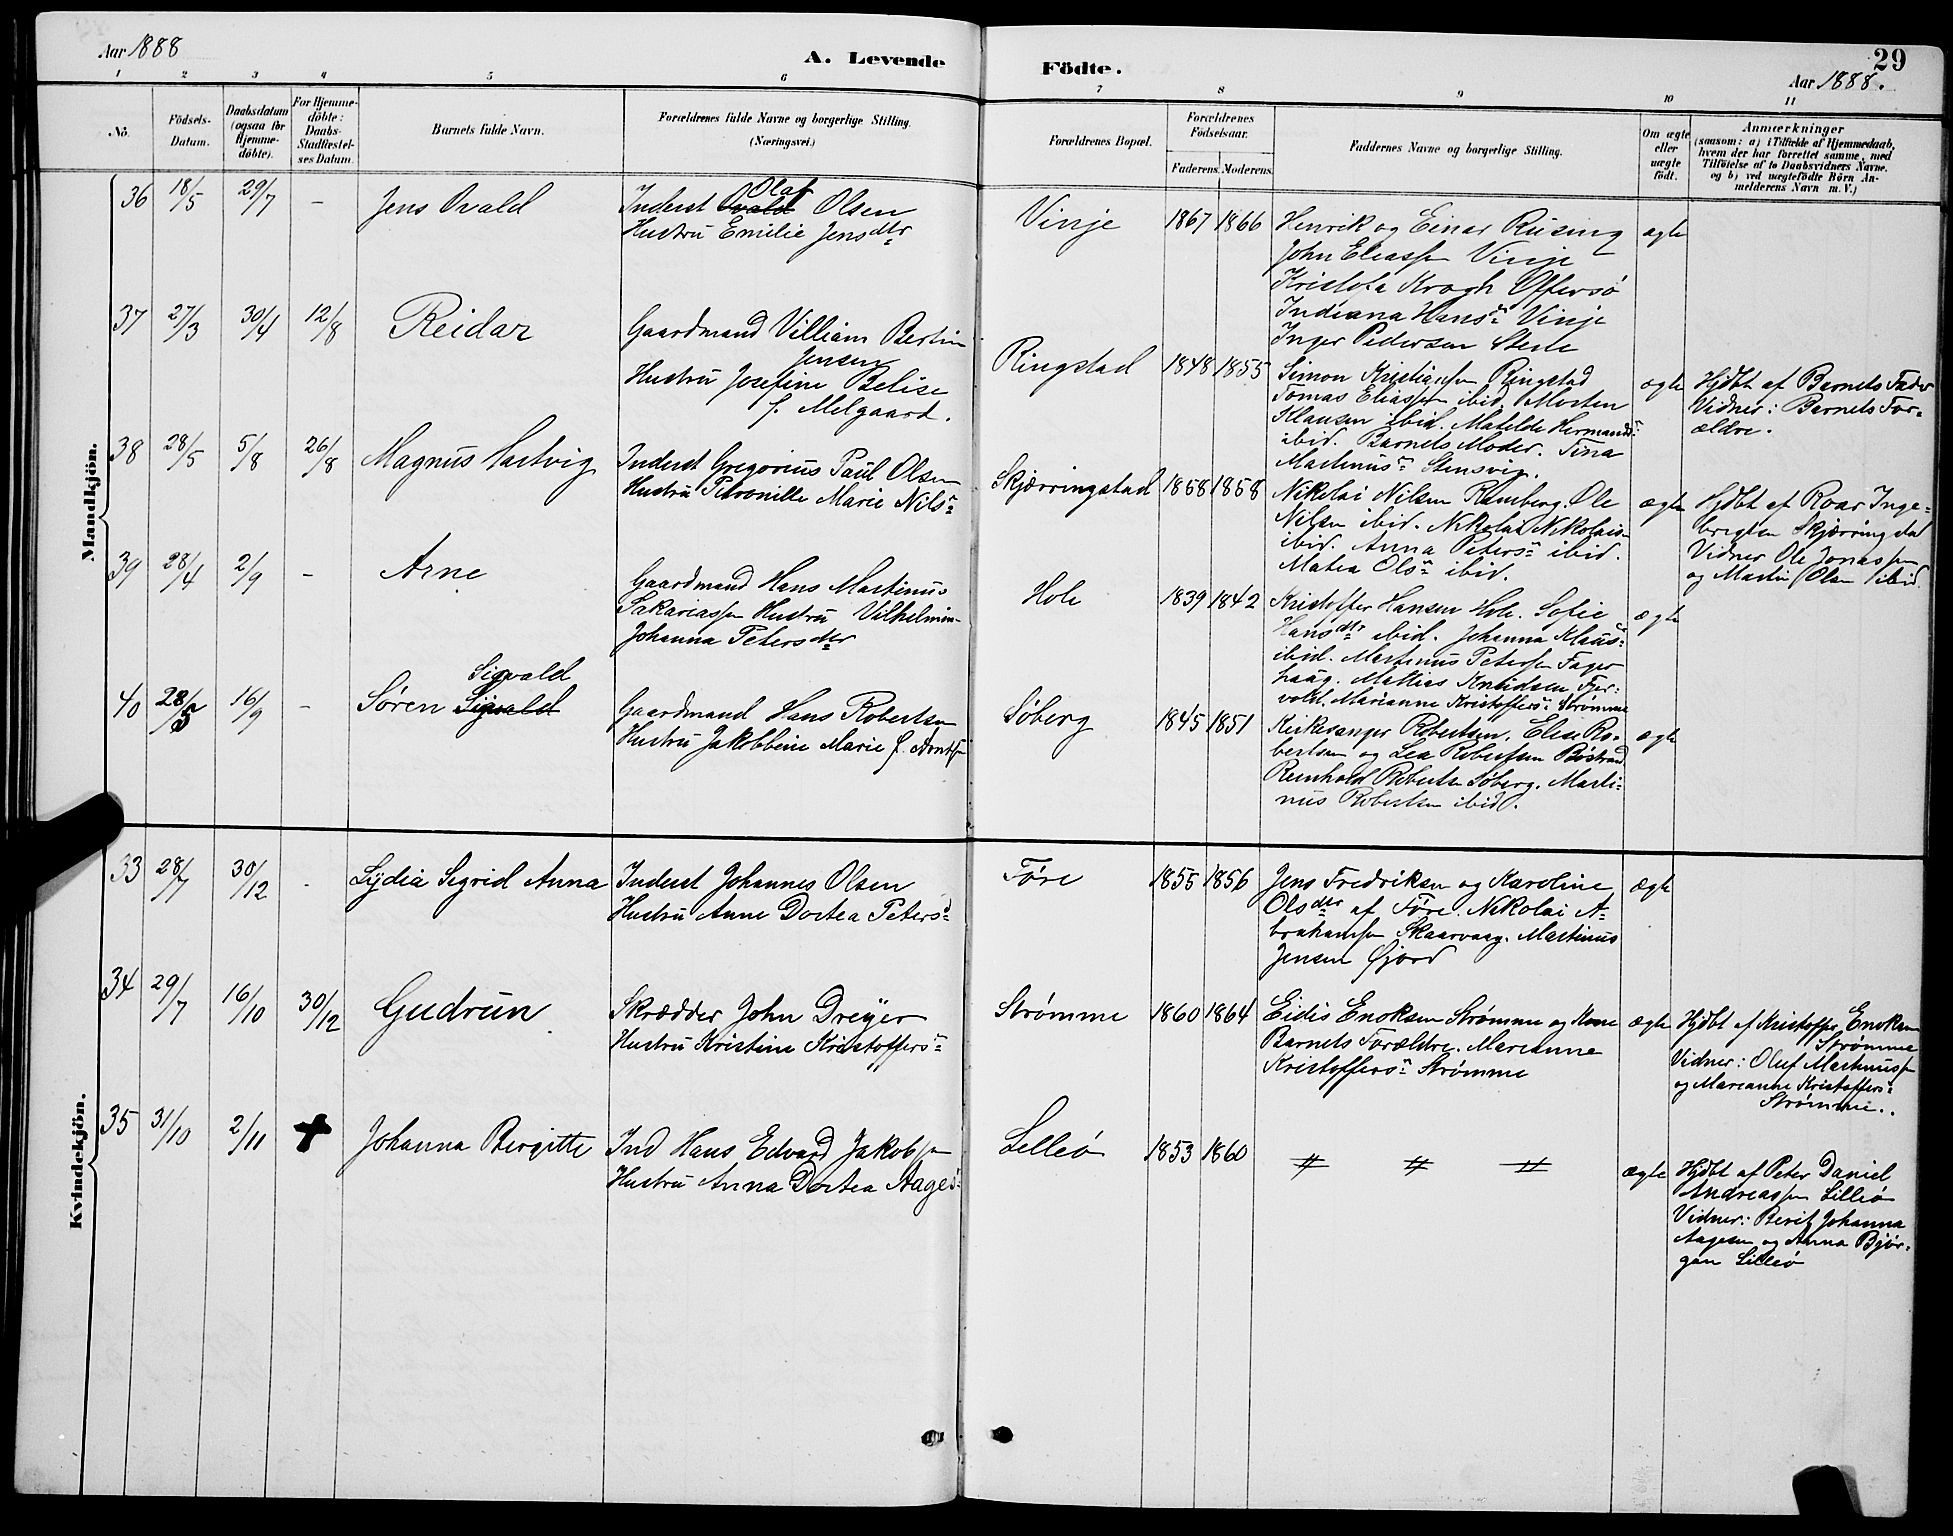 Aar 1888
A. Levende Födte.
29
Aar 1888.
1 2 3 4 5 6 7 8 9 10 11
No.
Födsels-Datum.
Daabsdatum (ogsaa for Hjemme-döbte).
For Hjemme-döbte: Daabs-Stadfæstel-ses Datum.
Barnets fulde Navn.
Forældrenes fulde Navne og borgerlige Stilling. (Næringsvei.)
Forældrenes Bopæl.
Forældrenes Födselsaar.
Faderens. Moderens.
Faddernes Navne og borgerlige Stilling.
Om ægte eller uægte födt.
Anmærkninger
(saasom: a) i Tilfælde af Hjemmedaab,
hvem der har forrettet samme, med
Tilföielse af to Daabsvidners Navne,
og b) ved uægtefödte Börn An-
melderens Navn m. V.)
Mandkjön.
36 18/5 29/7 - Jens Ovald
Inderst Ovald Olaf Olsen
Hustru Emilie Jensdtr
Vinje 1867 1866
Henrik og Einar Rusing
John Eliassen Vinje
Kristofa Krogh Offersø
Indiana Hansd Vinje
Inger Pedersen Steile
ægte
37 27/3 30/4 12/8 Reidar
Gaardmand Villiam Bertin
Jensen
Hustru Josefine Belise
f. Melgaard.
Ringstad 1848 1855
Simon Kristiansen Ringstad
Tomas Eliassen ibid. Morten
Klausen ibid. Matilde Hermansd:
ibid. Barnets Moder. Tina
Martinusd Stensvig.
ægte
Hjdbt af Barnets Fader
Vidner: Barnets For-
ældre.
38 28/5 5/8 26/8 Magnus Hartvig
Inderst Gregorius Paul Olsen
Hustru Petronille Marie Nilsd
Skjærringstad 1858 1858
Nikolai Nilsen Ramberg. Ole
Nilsen ibid. Nikolai Nikolais-
ibid. Anna Petersd ibid.
Matea Olsd ibid.
ægte
Hjdbt af Roar Inge-
brigtsen Skjærringstad
Vidner Ole Jonassen
og Martin Olsen ibid
39 28/4 2/9 - Arne
Gaardmand Hans Martinus
Sakariassen Hustru Vilhelmine
Johanna Petersdtr
Hole 1839 1842
Kristoffer Hansen Hole. Sofie
Hansdtr ibid. Johanna Klausd
ibid. Martinus Petersen Fager
haug. Mattias Knudsen Fjær-
vold. Marianne Kristoffersd Strømme
ægte
40 28/5 16/9 - Søren Sigvald Sigvald
Gaardmand Hans Robertsen
Hustru Jakobbine Marie f. Arntsen
Søberg 1845 1851
Kirkesanger Robertsen, Elise Ro-
bertsen og Lea Robertsen Bøstrand
Reinhold Roberts Søberg. Marti-
nus Robertsen ibid.
ægte
Kvindekjön.
33 28/7 30/12 - Lydia Sigrid Anna
Inderst Johannes Olsen
Hustru Anne Dortea Petersd
Føre 1855 1856
Jens Fredriksen og Karoline
Olsdtr af Føre. Nikolai A-
brahamsen Skaarvaag. Martinus
Jensen Gjord
ægte
34 29/7 16/10 30/12 Gudrun
Skrædder John Dreyer
Hustru Kristine Kristoffersd
Strømme 1860 1864
Eidis Enoksen Strømme og Kone
Barnets Forældre. Marianne
Kristoffersd Strømme
ægte
Hjdbt af Kristoffer Enoksen
Strømme
Vidner: Oluf Martinussen
og Marianne Kristoffersd
Strømme.
35 31/10 2/11 + Johanna Bergitte
Ind Hans Edvard Jakobsen
Hustru Anna Dortea Aagesd
Lilleø 1853 1860
# # #
ægte
Hjdbt af Peter Daniel
Andreassen Lilleø
Vidner: Berit Johanna
Aagesen og Anna Bjør-
gan Lilleø